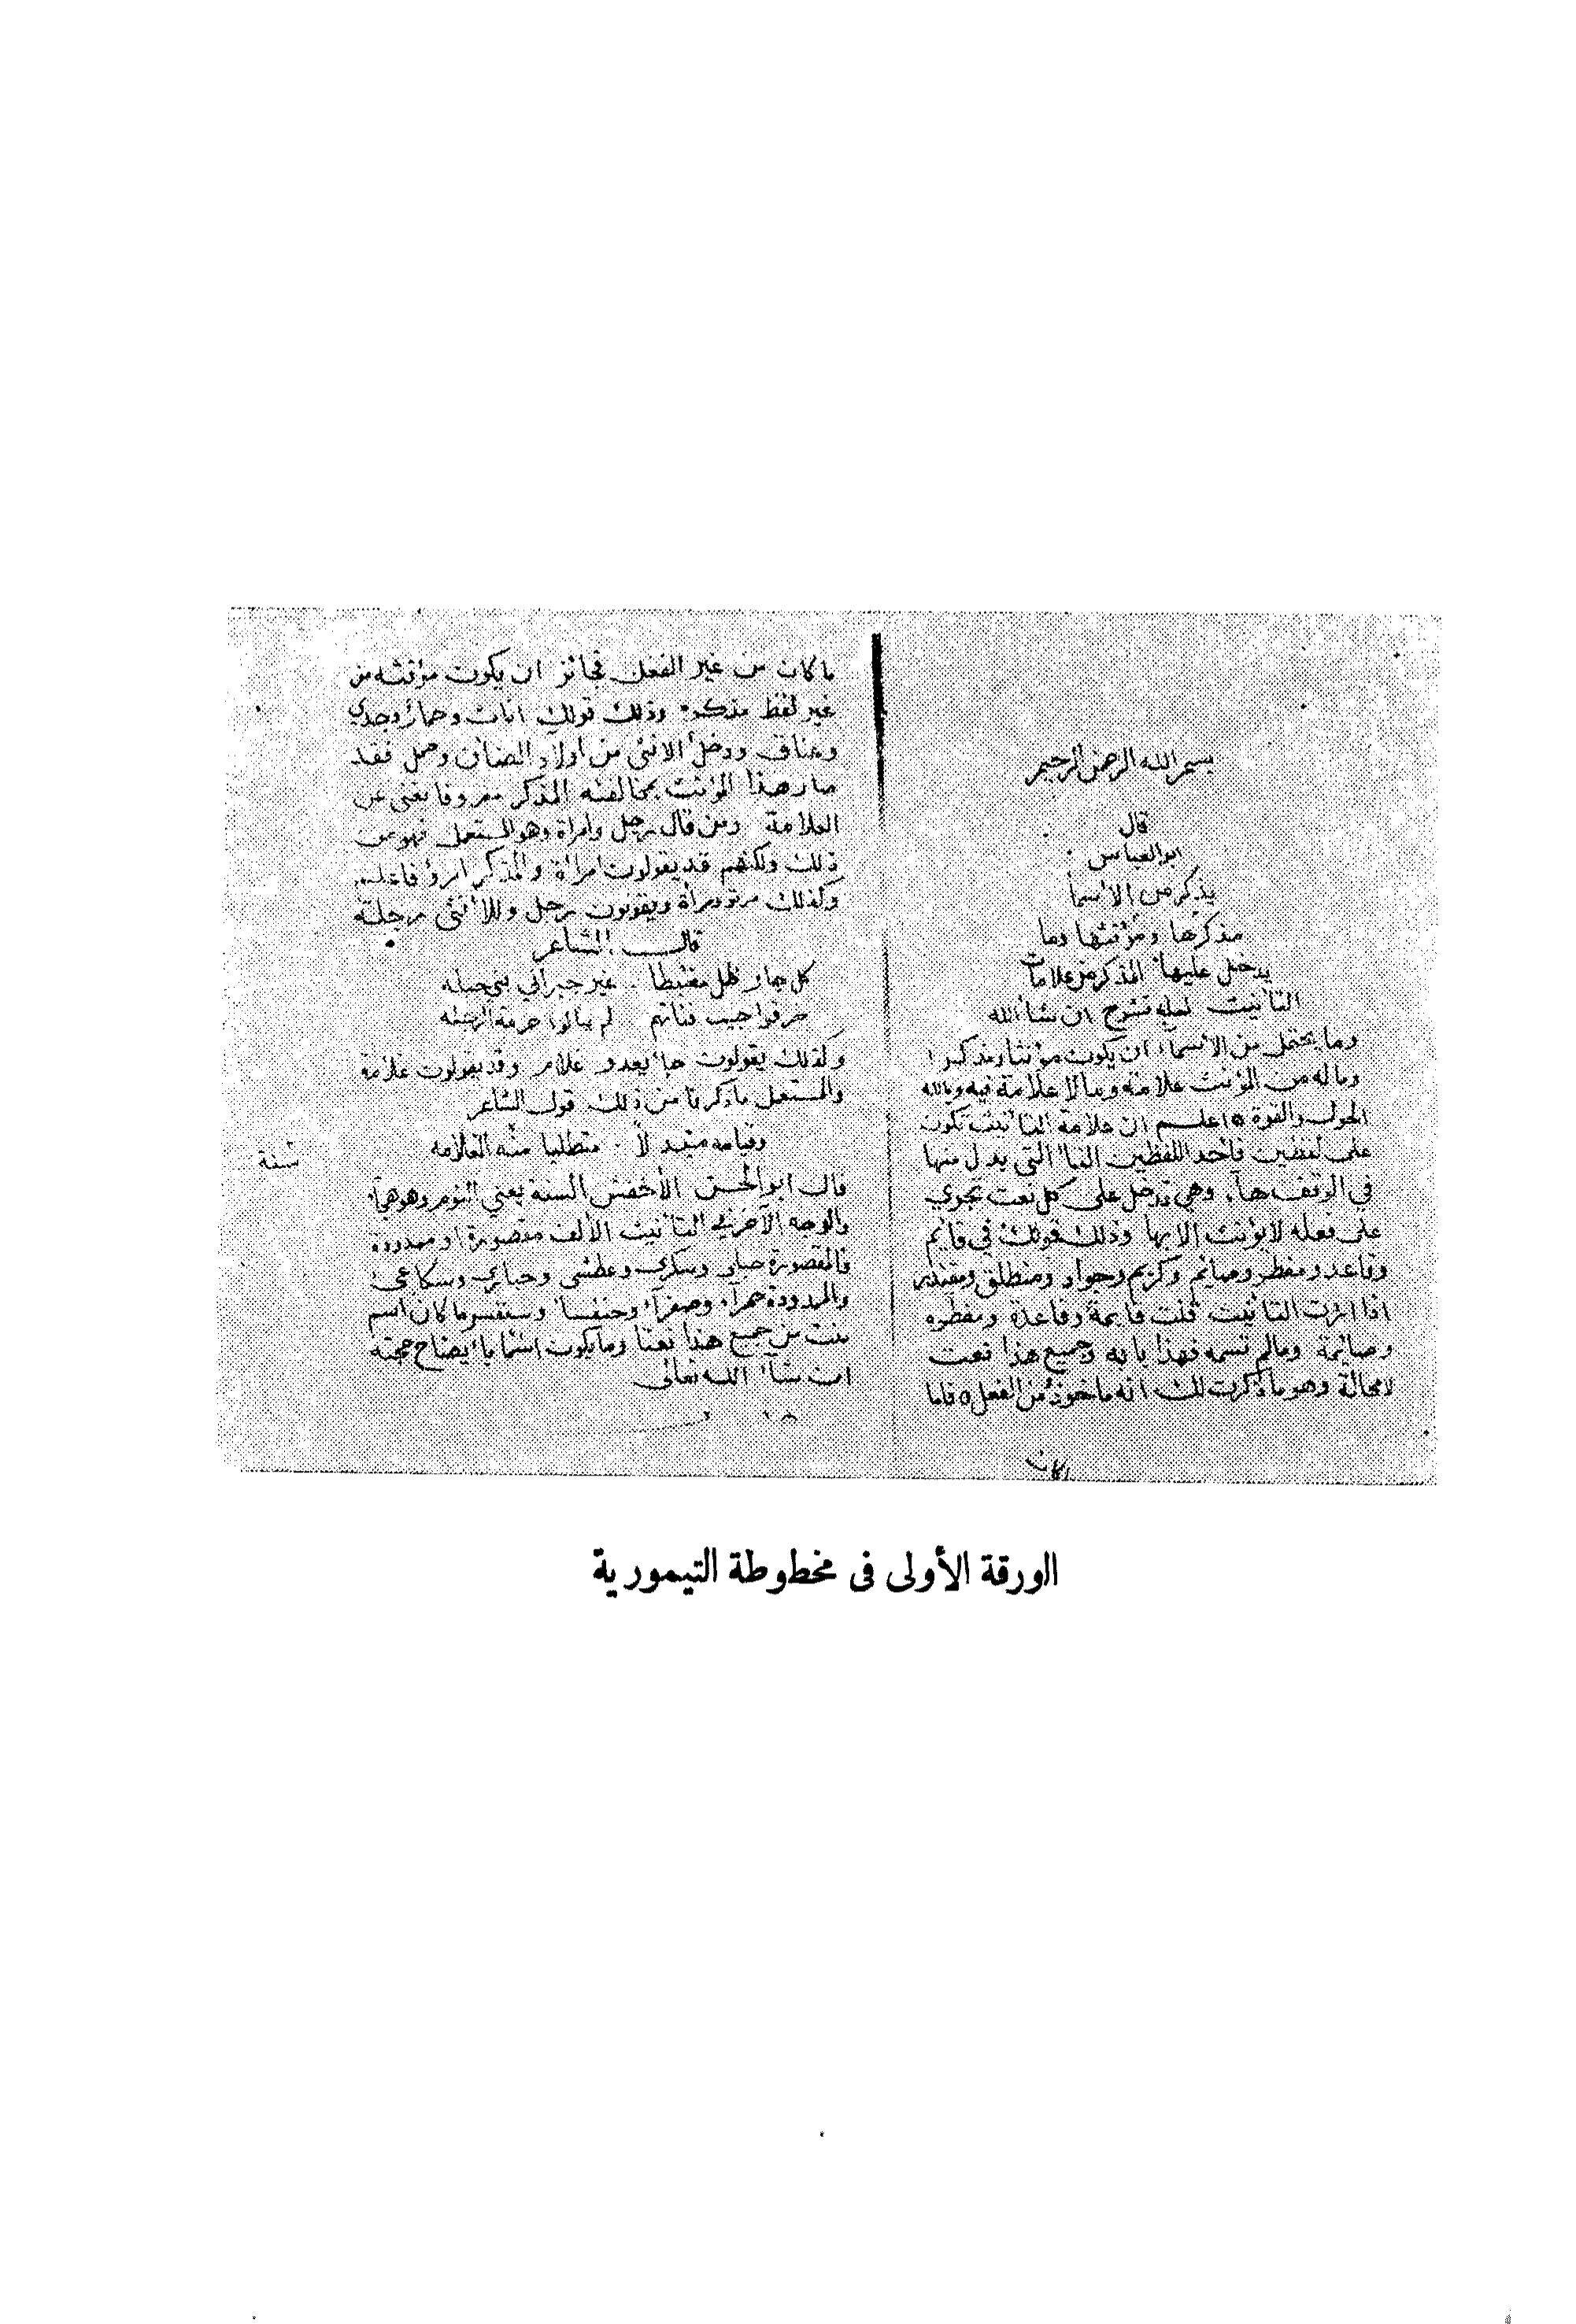 بسم الله الرحمن الرحيم
قال
ابو العباس
يذكر من الأسما
مذكرها ومؤنثها وما
يدخل عليها المذكر من علامات
التانيث لعله تشرح ان شا الله
وما يحتمل من الأسماء ان يكون مؤنثا ومذكرا
وما له من المؤنث علامته وما لا علامة فيه وبالله
الحول والقوة ه اعلم ان علامة التانيث تكون
على لفظين فأحد اللفظين التا التي يبدل منها
في الوقف هاء وهي تدخل على كل نعت تجري
على فعله لا يؤنث الا بها وذلك قولك في قايم
وقاعد ومفطر وصايم وكريم وجواد ومنطلق ومقتدر
اذا اردت التانيث قلت قايمة وقاعدة ومفطره
وصائمة وما لم نسمه فهذا بابه وجميع هذا نعت
لا محالة وهو ما ذكرت لك انه ماخوذ من الفعل ه فاما
ماكان
ما كان من غير الفعل فجائز ان يكون مؤنثه من
غير لفظ مذكره وذلك قولك اتان وحمار وجدي
وعناق ورخل الانثى من اولاد الضان وحمل فقد
صار هذا المؤنث بمخالفته المذكر معروفا يغني عن
العلامة ومن قال رجل وامراة وهو المستعمل فهو من
ذلك ولكنهم قد يقولون امراة والمذكر امرؤ فاعلم
وكذلك مرء ومرأة ويقولون رجل وللأنثى رجلة
قال الشاعر
كل جار ظل مغتبطا غير جيراني بني جبله
خرقوا جيب فتاتهم لم يبالوا حرمة الرجله
وكذلك يقولون غلام وقد يقولون غلامة
والمستعمل ما ذكرنا من ذلك قول الشاعر
متطلبا منه الغلامه
سنة
قال ابو الحسن الأخفش السنة يعني النوم وهو
والوجه الآخر في التانيث الألف مقصورة او ممدودة
فالمقصورة حبلى وسكرى وعطشى وحبارى وسكاعى
والممدودة حمراء وصفراء وخنفسا وستفسر ما كان اسم
بنت من جميع هذا نعتا وما يكون اسما بايضاح حجته
ان شا الله تعالى
الورقة الأولى فى مخطوطة التيمورية